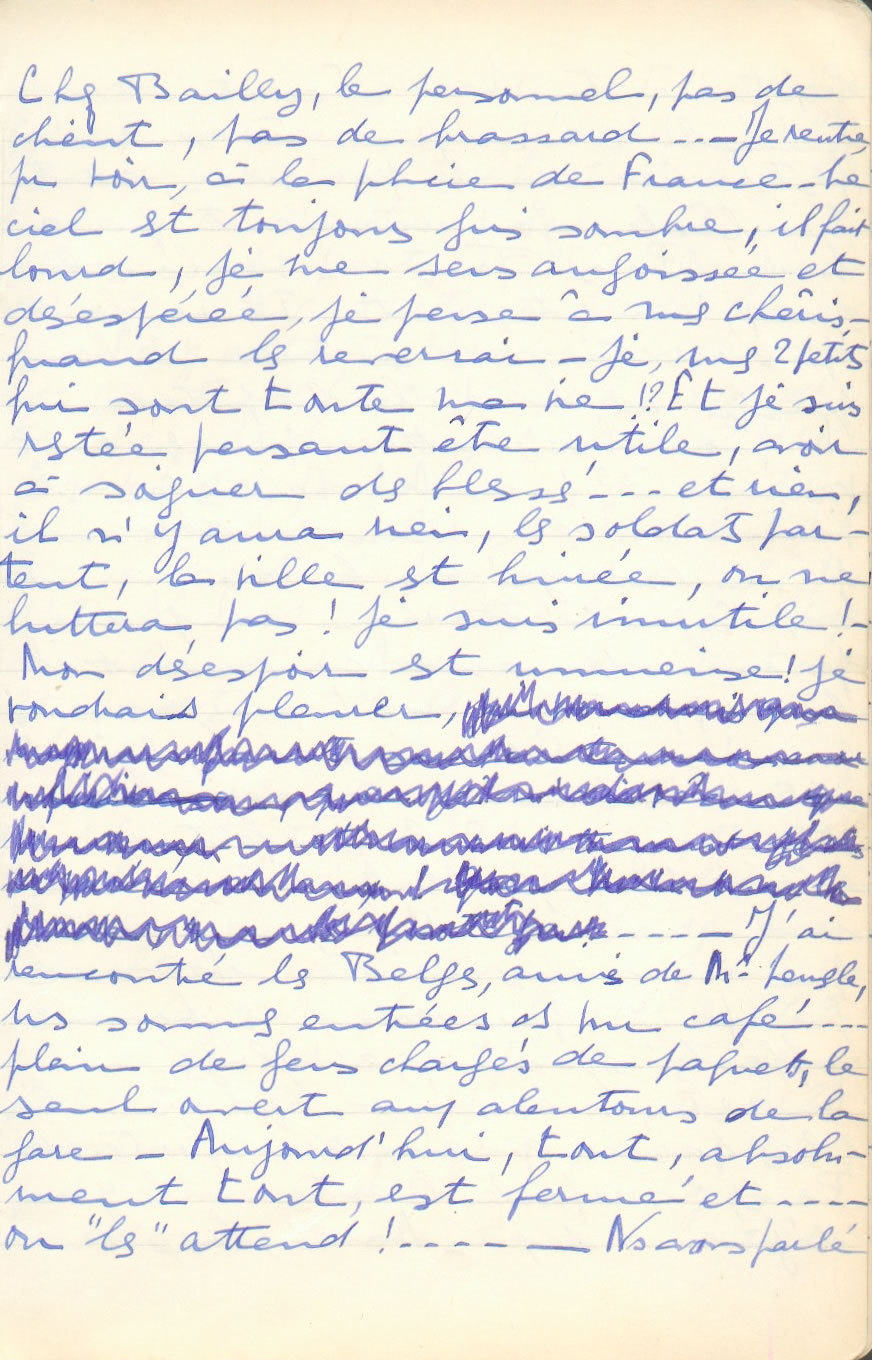 Chez Bailly, le personnel, pas de
client, pas de brassard --- Je rentre,
pr voir, à la place de France - Le
ciel est toujours gris sombre, il fait
lourd, je me sens angoissée et
désespérée, je pense à mes chéris -
quand les reverrai-je, mes 2 petits
qui sont toute ma vie !? Et je suis
restée pensant être utile, avoir
à soigner des blessés --- et rien,
il n'y aura rien, les soldats par-
tent, la ville est livrée, on ne
luttera pas ! je suis inutile ! -
Mon désespoir est immense ! je
voudrais pleurer,
---- J'ai
rencontré les Belges, amis de Mr
ns sommes entrées ds un café ---
plein de gens chargés de paquets, le
seul ouvert aux alentours de la
gare - Aujourd'hui, tout, absolu-
ment tout, est fermé et ----
on "les" attend ! ----- Ns avons parlé